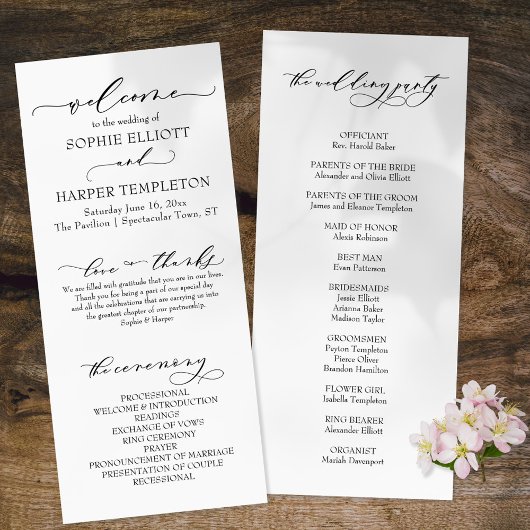 welcome
to the wedding of
SOPHIE ELLIOTT
and
HARPER TEMPLETON
Saturday June 16, 20xx
The Pavilion | Spectacular Town, ST
love & thanks
We are filled with gratitude that you are in our lives.
Thank you for being a part of our special day
and all the celebrations that are carrying us into
the greatest chapter of our partnership.
Sophie & Harper
the ceremony
PROCESSIONAL
WELCOME & INTRODUCTION
READINGS
EXCHANGE OF VOWS
RING CEREMONY
PRAYER
PRONOUNCEMENT OF MARRIAGE
PRESENTATION OF COUPLE
RECESSIONAL
the wedding party
OFFICIANT
Rev. Harold Baker
PARENTS OF THE BRIDE
Alexander and Olivia Elliott
PARENTS OF THE GROOM
James and Eleanor Templeton
MAID OF HONOR
Alexis Robinson
BEST MAN
Evan Patterson
BRIDESMAIDS
Jessie Elliott
Arianna Baker
Madison Taylor
GROOMSMEN
Peyton Templeton
Pierce Oliver
Brandon Hamilton
FLOWER GIRL
Isabella Templeton
RING BEARER
Alexander Elliott
ORGANIST
Mariah Davenport